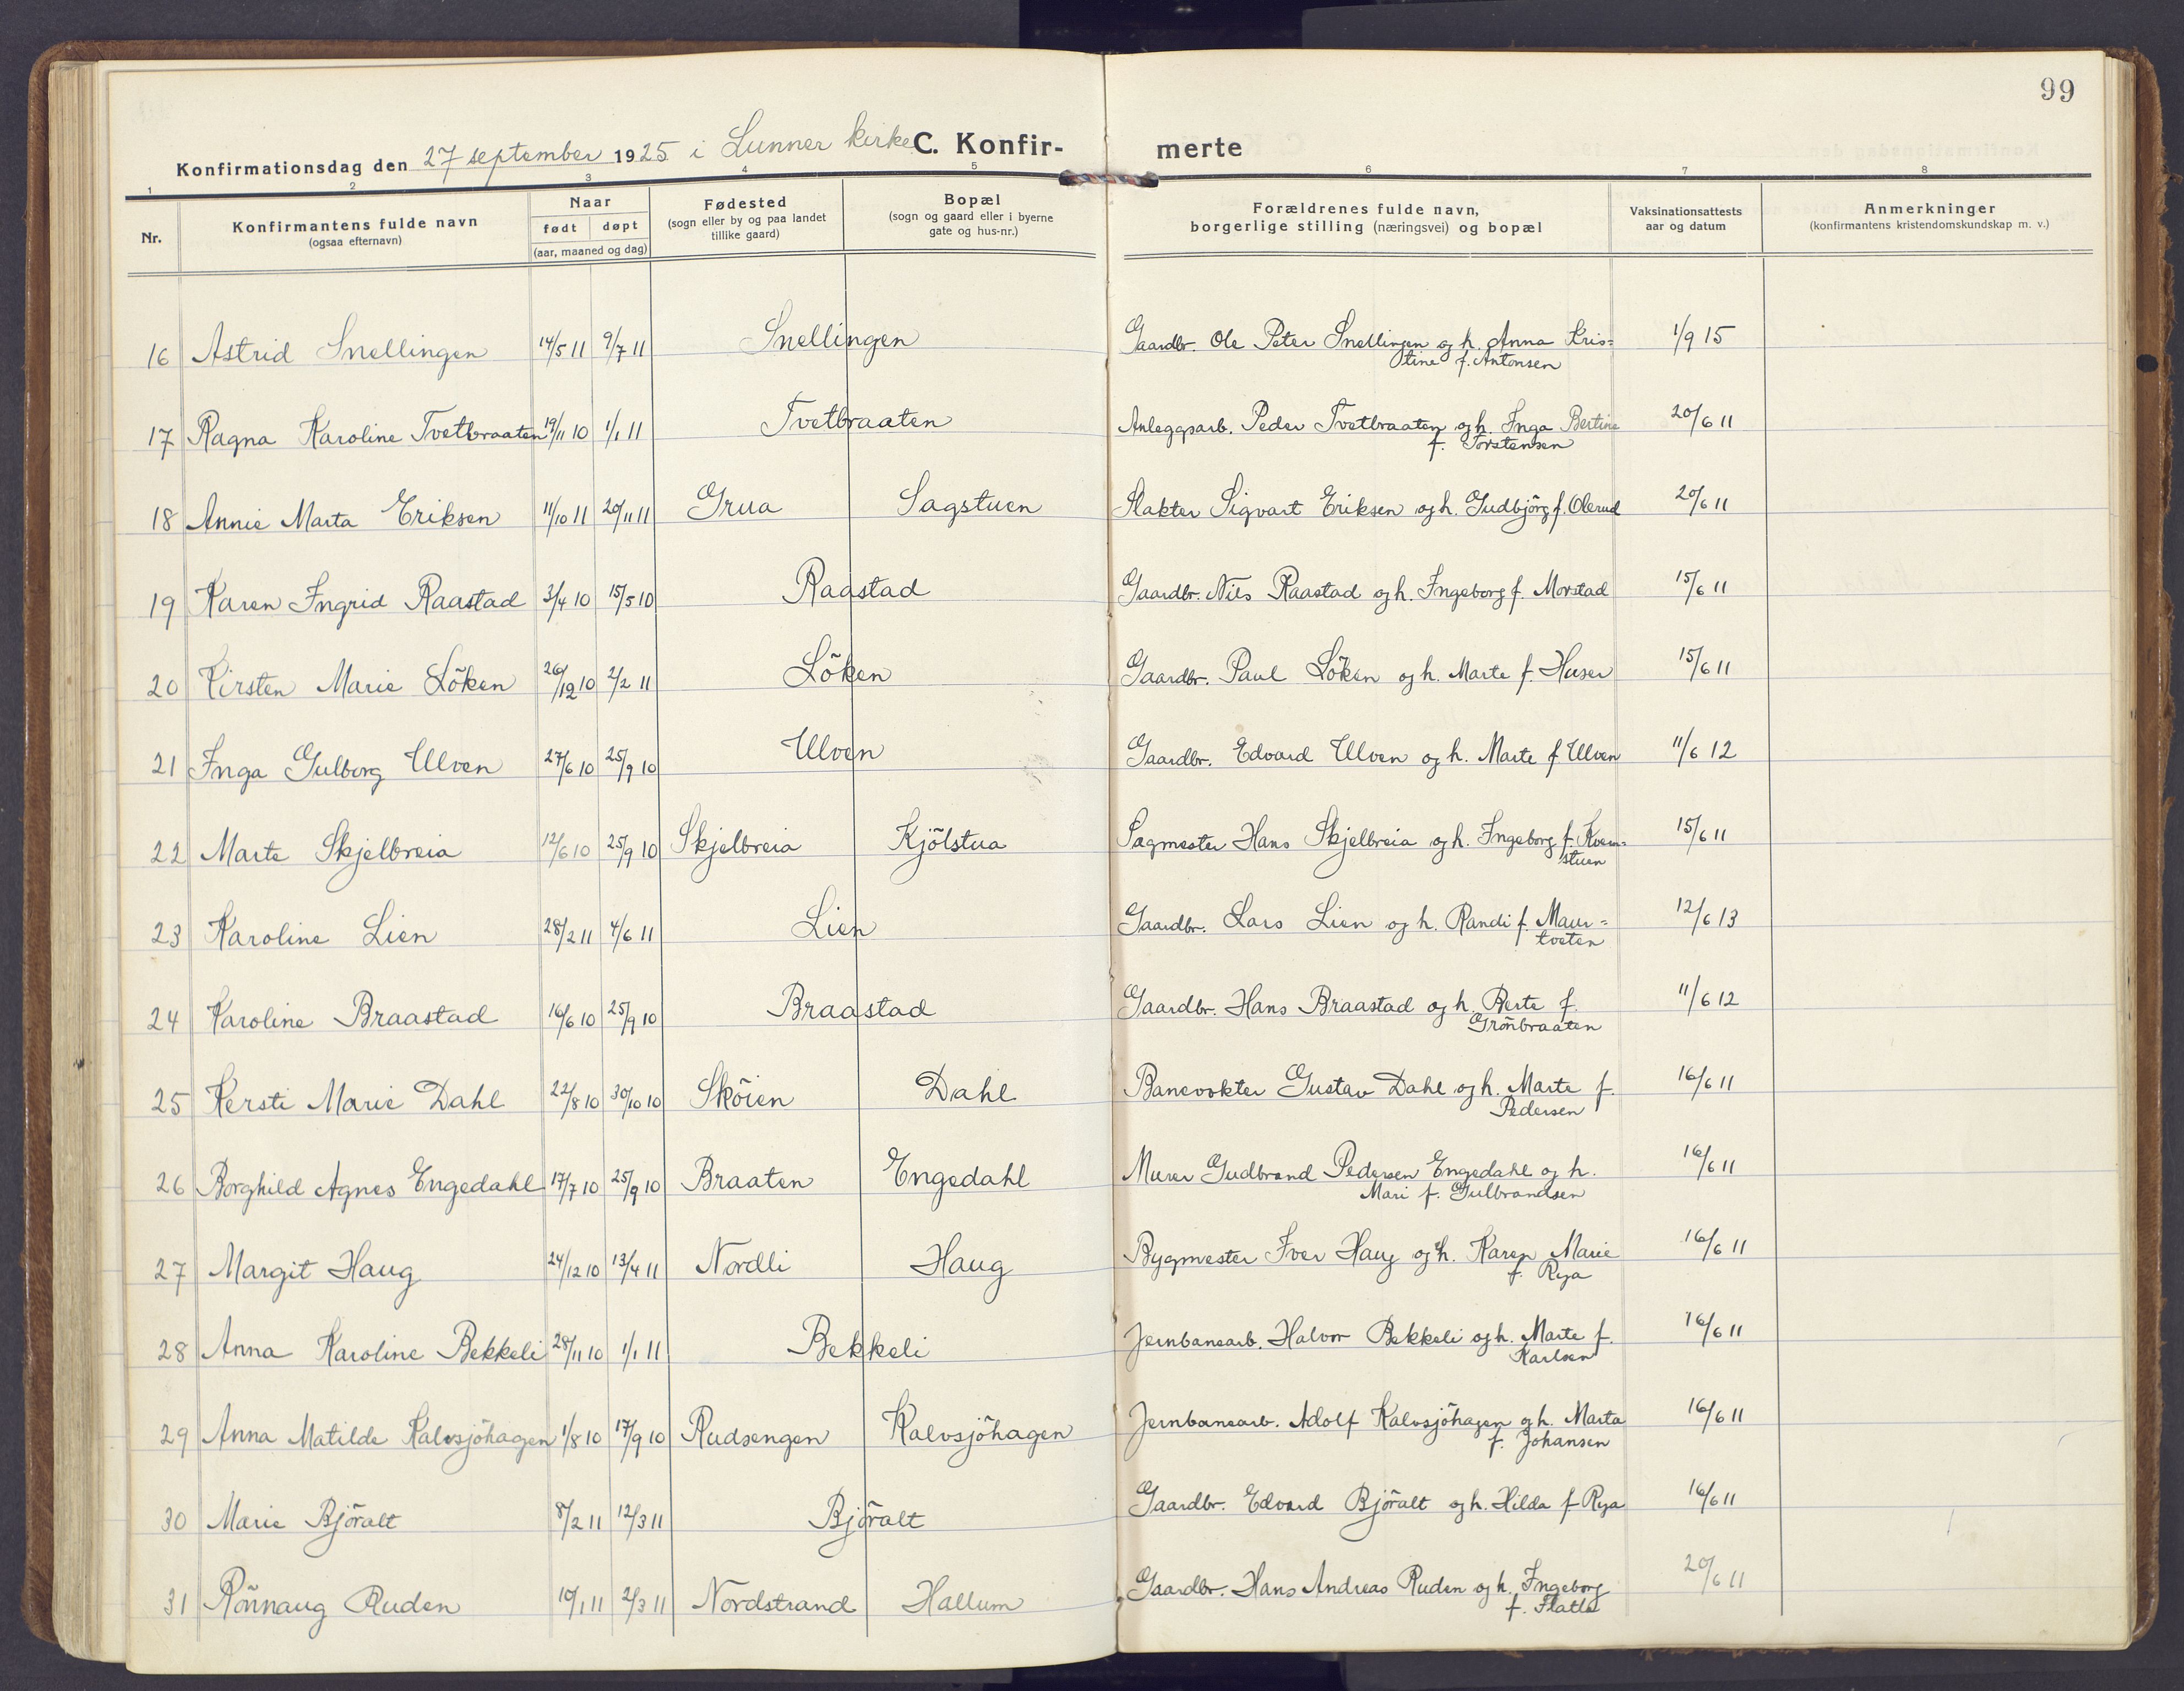 99
Konfirmationsdag den 27 september 1925 i Lunner kirke C. Konfir- merte
1 2 3 4 5 6 7 8
Nr.
Konfirmantens fulde navn
(ogsaa efternavn)
Naar
født døpt
(aar, maaned og dag)
Fødested
(sogn eller by og paa landet
tillike gaard)
Bopæl
(sogn og gaard eller i byerne
gate og hus-nr.)
Forældrenes fulde navn,
borgerlige stilling (næringsvei) og bopæl
Vaksinationsattests
aar og datum
Anmerkninger
(konfirmantens kristendomskundskap m. v.)
16 Astrid Snellingen 14/5 11 9/7 11 Snellingen Gaardbr. Ole Peter Snellingen og h. Anna Kris= 1/9 15
tine f. Antonsen
17 Ragna Karoline Tvetbraaten 19/11 10 1/1 11 Tvetbraaten Anleggsarb. Peder Tvetbraaten og h. Inga Bertine 20/6 11
f. Torstensen
18 Annie Marta Eriksen 11/10 11 20/11 11 Grua Sagstuen Slakter Sigvart Eriksen og h. Gudbjörg f. Olerud 20/6 11
19 Karen Ingrid Raastad 3/4 10 15/5 10 Raastad Gaardbr. Nils Raastad og h. Ingeborg f. Morstad 15/6 11
20 Kirsten Marie Löken 26/12 10 2/2 11 Löken Gaardbr. Paul Löken og h. Marte f. Huser 15/6 11
21 Inga Gulborg Ulven 27/6 10 25/9 10 Ulven Gaardbr. Edvard Ulven og h. Marte f Ulven 11/6 12
22 Marte Skjelbreia 12/6 10 25/9 10 Skjelbreia Kjölstua Sagmester Hans Skjelbreia og h. Ingeborg f. Kvern= 15/6 11
stuen
23 Karoline Lien 28/2 11 4/6 11 Lien Gaardbr. Lars Lien og h. Randi f. Maur= 12/6 13
tveten
24 Karoline Braastad 16/6 10 25/9 10 Braastad Gaardbr. Hans Braastad og h. Berte f. 11/6 12
Grönbraaten
25 Kersti Marie Dahl 22/8 10 30/10 10 Sköien Dahl Banevokter Gustav Dahl og h. Marte f. 16/6 11
Pedersen
26 Borghild Agnes Engedahl 17/7 10 25/9 10 Braaten Engedahl Murer Gudbrand Pedersen Engedahl og h. 16/6 11
Mari f. Gulbrandsen
27 Margit Haug 24/12 10 13/4 11 Nordli Haug Bygmester Iver Haug og h. Karen Marie 16/6 11
f. Rya
28 Anna Karoline Bekkeli 28/11 10 1/1 11 Bekkeli Jernbanearb. Halvor Bekkeli og h. Marte f. 16/6 11
Karlsen
29 Anna Matilde Kalvsjöhagen 1/8 10 17/9 10 Rudsengen Kalvsjöhagen Jernbanearb. Adolf Kalvsjöhagen og h. Marta 16/6 11
f. Johansen
30 Marie Björalt 8/2 11 12/3 11 Björalt Gaardbr. Edvard Björalt og h. Hilda f Rya 16/6 11
31 Rönnaug Ruden 10/1 11 2/3 11 Nordstrand Hallum Gaardbr. Hans Andreas Ruden og h. Ingeborg 20/6 11
f. Flatla